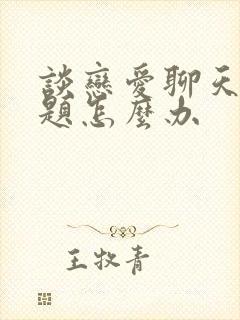 談戀愛聊天
題怎麼办
王牧青